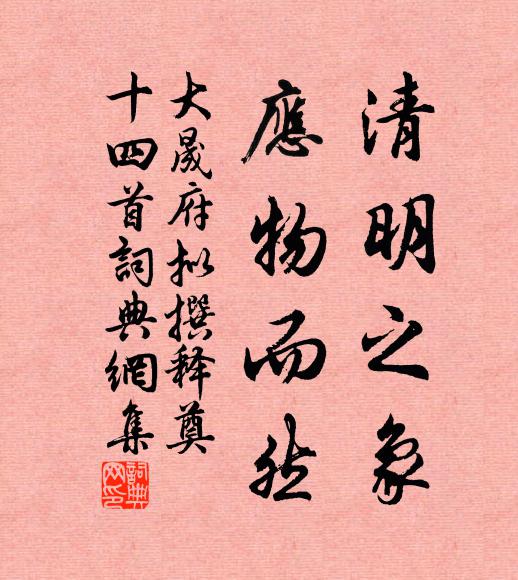 清明之象
應物而然
大晟府拟撰释奠
十四首詞典網集
詞典
网印